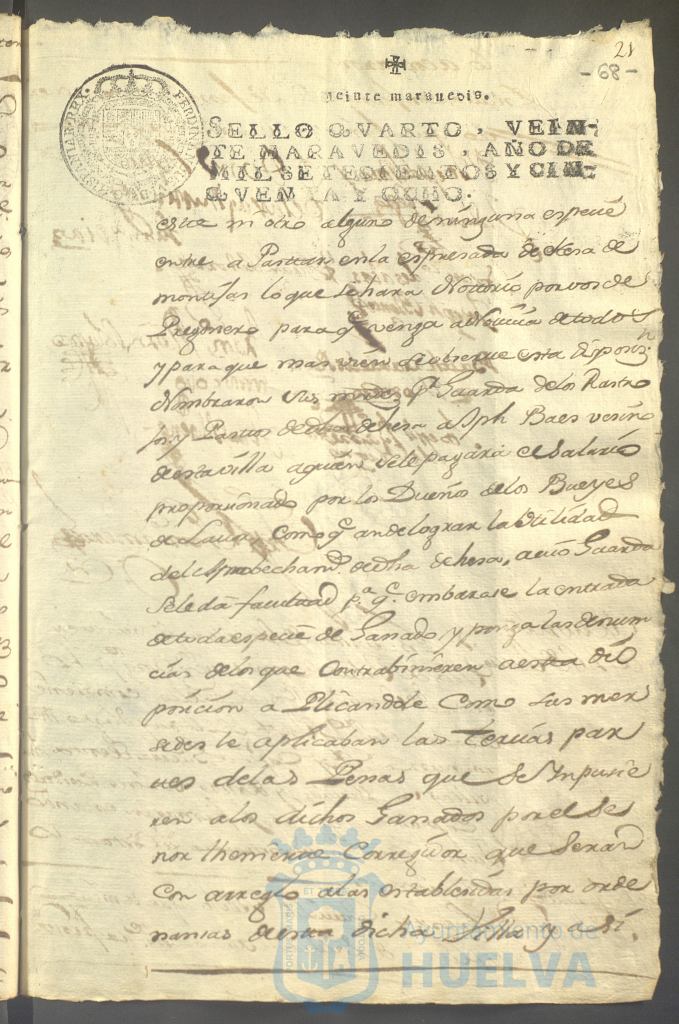 21
-68-
veinte maravedis.
SELLO QVARTO, VEIN-
TE MARAVEDIS, AÑO DE
MIL SETECIENTOS Y CIN-
QVENTA Y OCHO.
este ni otro alguno de ninguna especie
entre a Pastar en la espresada dehesa de
montijas lo que se hara Notorio por vos de
Pregonero para q̃ venga a Noticia de todos
y para que mas vien se observe esta disposiz.n
Nombraron sus mrds. p.r Guarda de los Rastro
jos y Pastos de dha dehesa a Jph Baes vesino
de esta villa a quien se le pagara el salario
proporcionado por los Dueños de los Bueyes
de Lavor, como q.e an de lograr la Utilidad
del aprobecham.to de dha dehesa, a cuio Guarda
se le da facultad p.a q.e embarase la entrada
de toda especie de Ganado y ponga las denun
cias de los que Contrabinieren a esta dis
posicion aplicandole como sus mer
sedes le aplicaban las terzias par
tes de las Penas que se Ynpusie
ren a los dichos Ganados por el Se
ñor theniente Corregidor que seran
con arreglo a las establesidas por orde
nansas de esta dicha Villa y asi
Ayuntamiento de
HUELVA